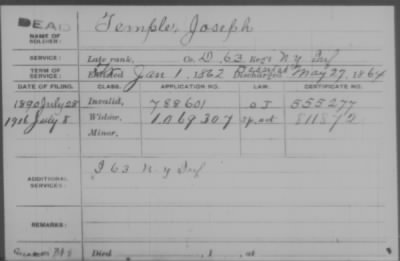 DEAD
NAME OF SOLDIER: Temple, Joseph
SERVICE: Late rank, Co. D, 63 Reg't N.Y. Inf
TERM OF SERVICE: Enlisted Jan 1, 1862 Discharged May 27, 1864
DATE OF FILING. CLASS. APPLICATION NO. LAW. CERTIFICATE NO.
1890 July 28 Invalid, 788601 555277
1916 July 8 Widow, 1.069307 811872
Minor,
ADDITIONAL SERVICES: I 63 N.Y. Inf
REMARKS:
Died , 1 , at